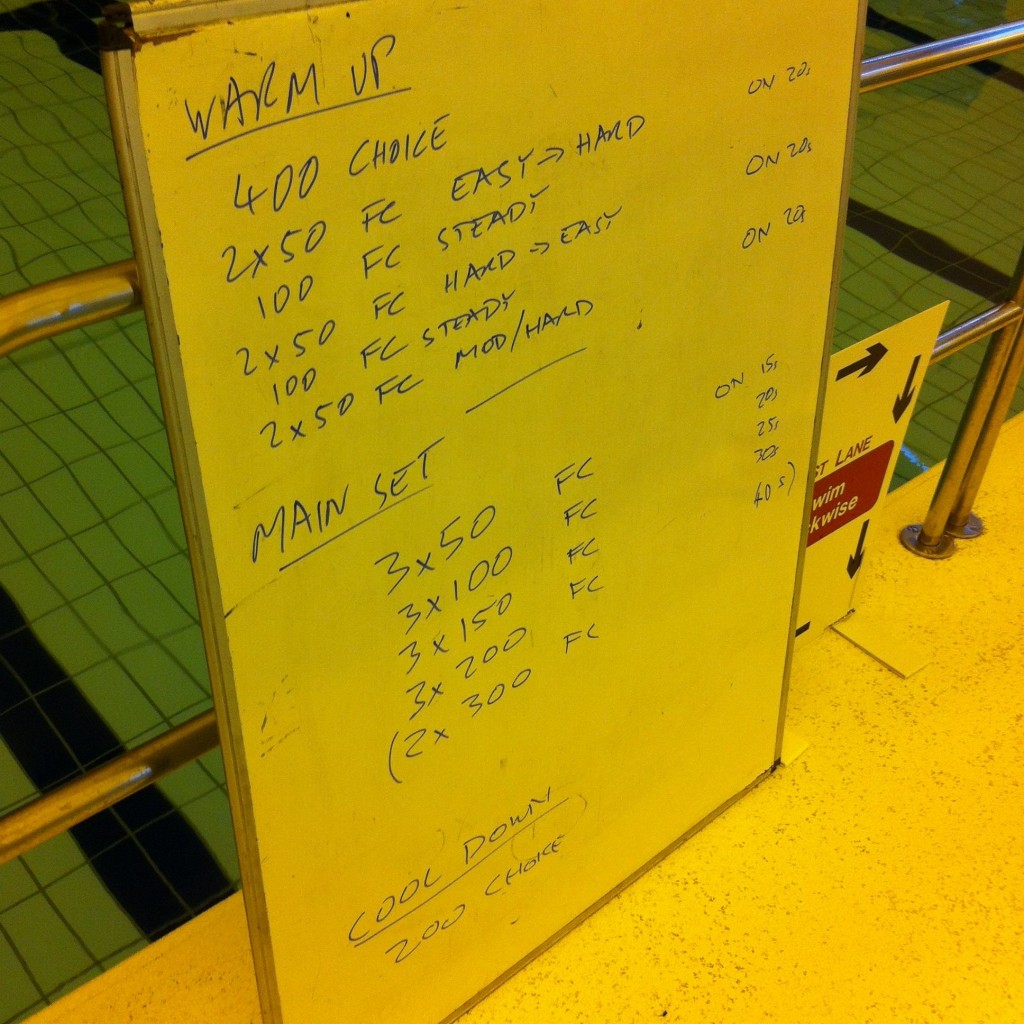 WARM UP
400 CHOICE
2x50 FC EASY → HARD ON 20s
100 FC STEADY
2x50 FC HARD → EASY ON 20s
100 FC STEADY
2x50 FC MOD/HARD ON 20s
MAIN SET
3x50 FC ON 15s
3x100 FC 20s
3x150 FC 25s
3x200 FC 30s
(2x 300 FC 40s)
COOL DOWN
200 CHOICE
ST LANE
wim
kwise